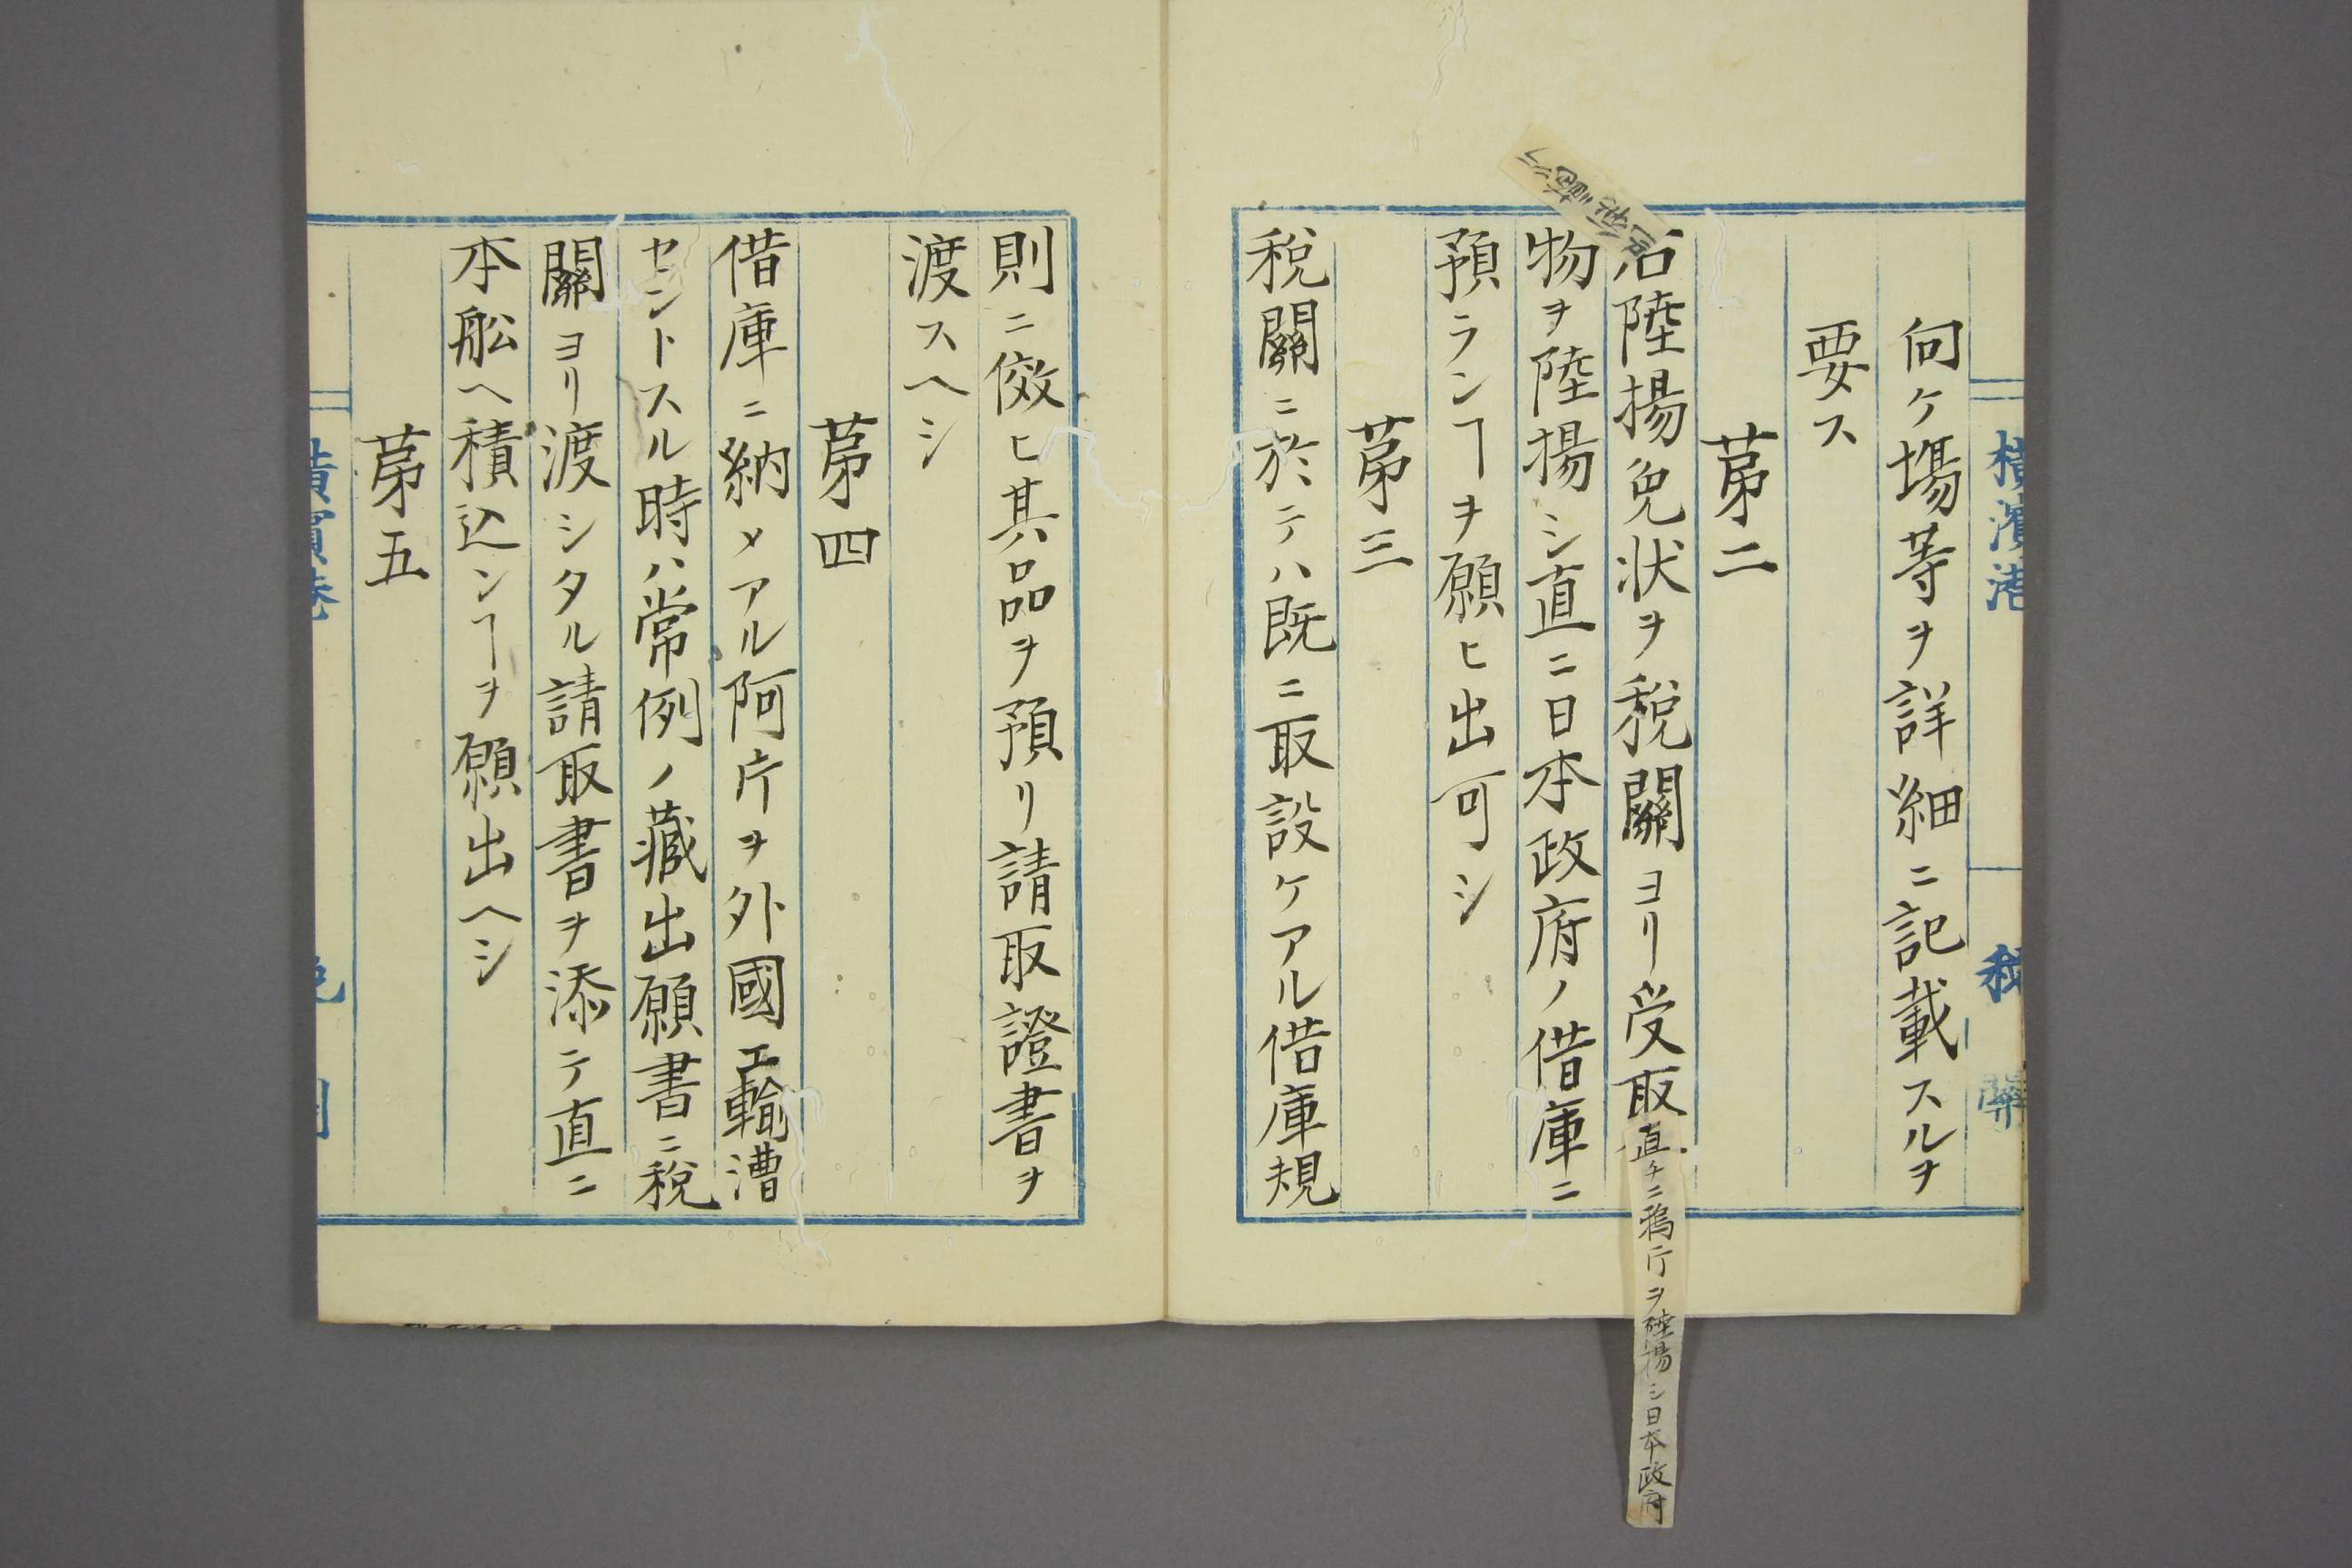 横濱港 税關
向ケ塲等ヲ詳細ニ記載スルヲ
要ス
苐二
右陸揚免状ヲ税關ヨリ受取
直チニ鴉片ヲ陸揚シ日本政府
物ヲ陸揚シ直ニ日本政府ノ借庫ニ
預ランヿヲ願ヒ出可シ
苐三
税關ニ於テハ既ニ取設ケアル借庫規
則ニ傚ヒ其品ヲ預リ請取證書ヲ
渡スヘシ
苐四
借庫ニ納メアル阿片ヲ外國エ輸漕
セントスル時ハ常例ノ藏出願書ニ税
關ヨリ渡シタル請取書ヲ添テ直ニ
本舩ヘ積込ンヿヲ願出ヘシ
苐五
横濱港